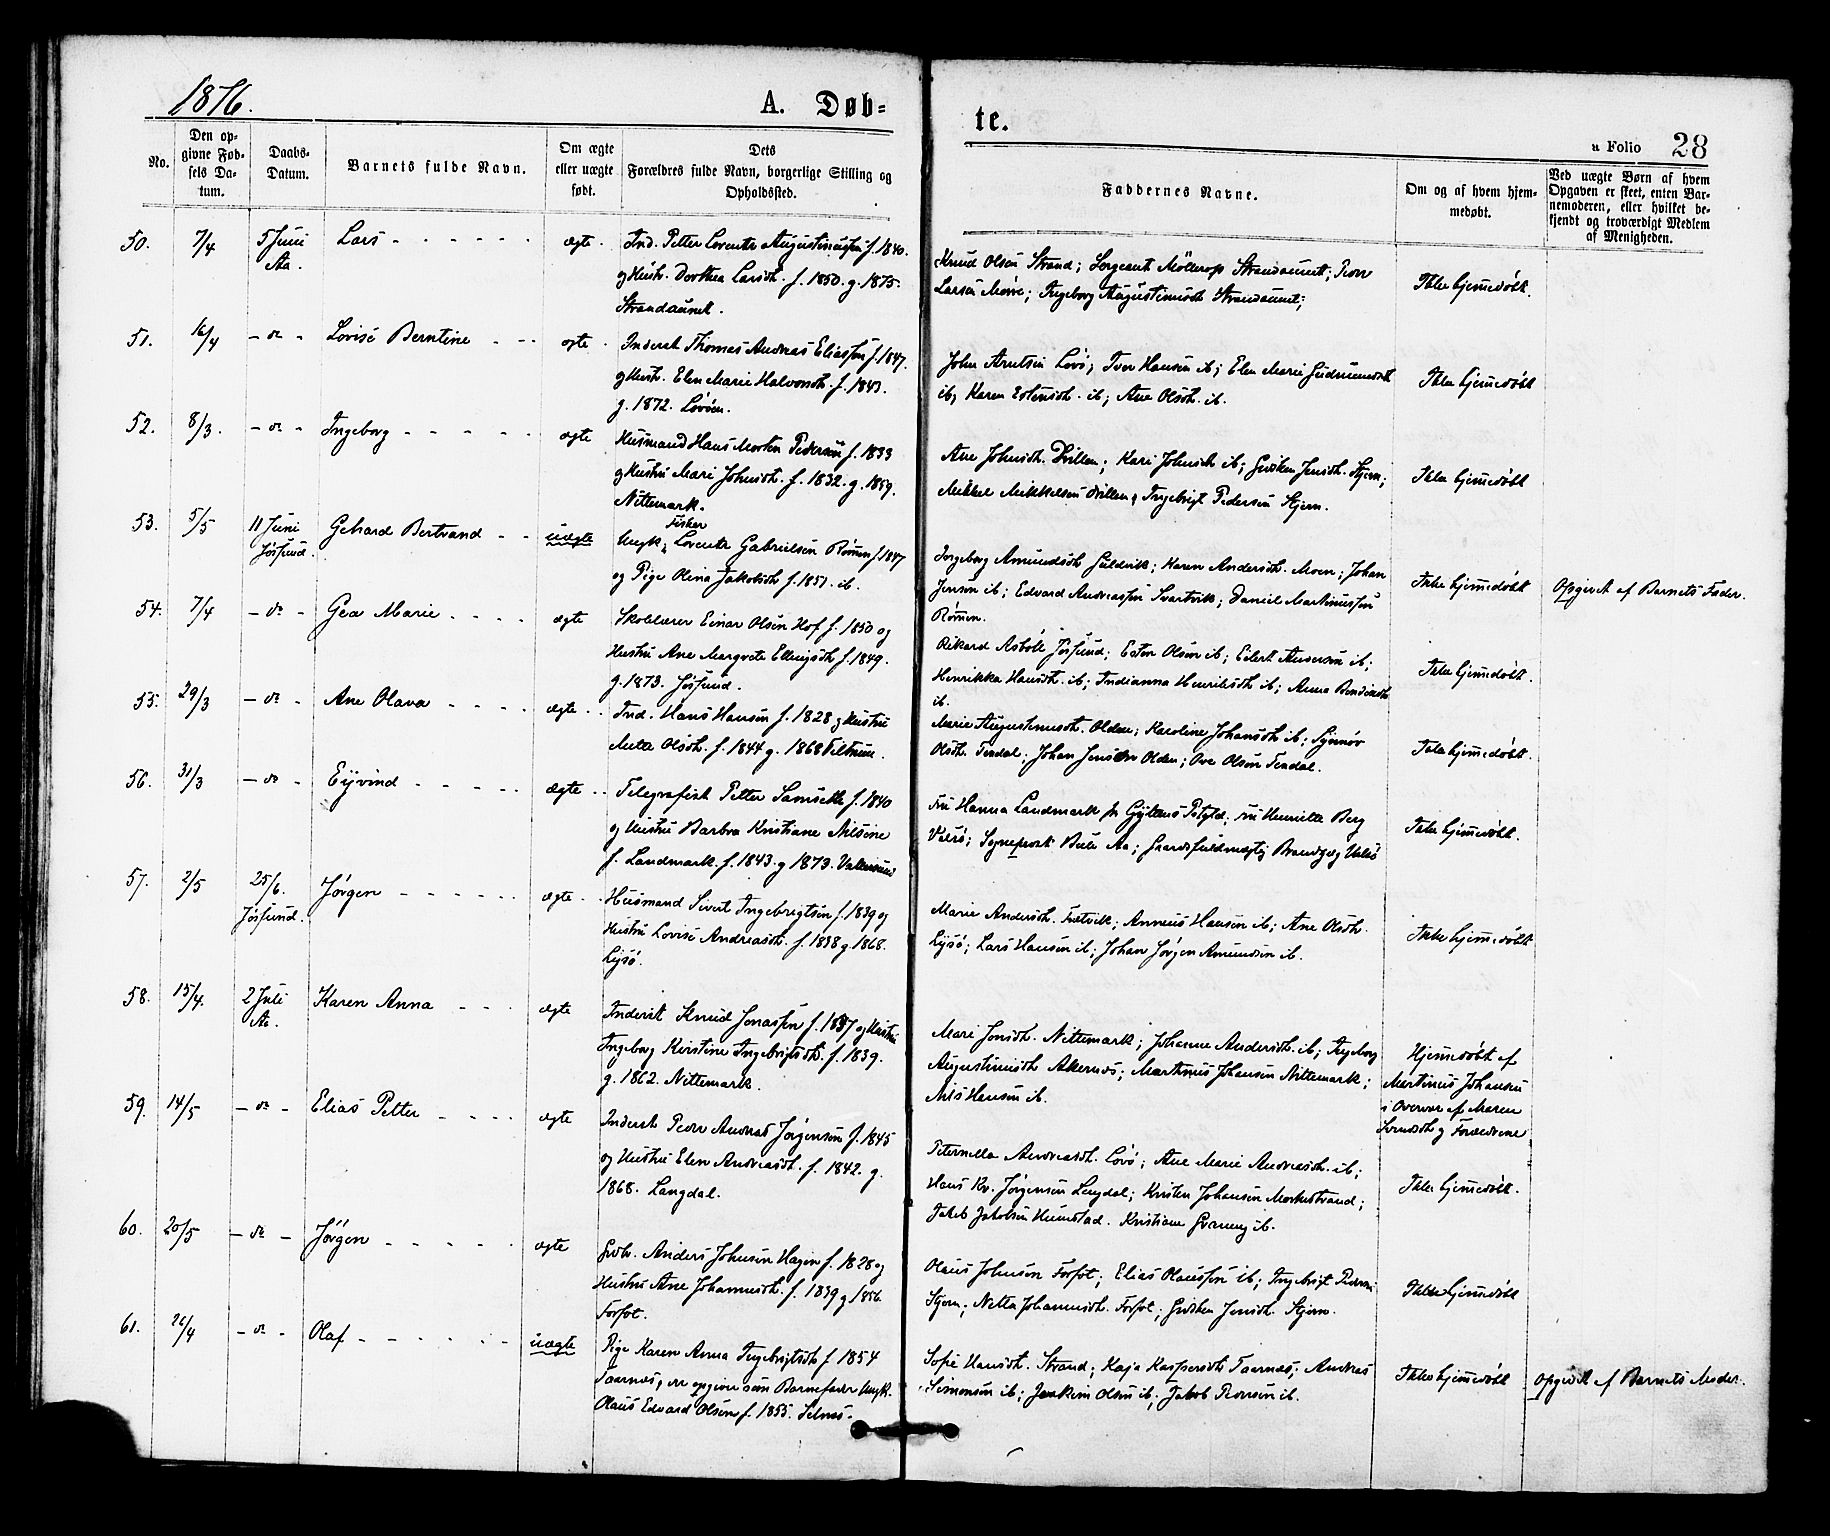 1876.
A. Døb-
te.
a Folio 28
No.
Den op-
givne Fød-
sels Da-
tum.
Daabs-
Datum.
Barnets fulde Navn.
Om ægte
eller uægte
født.
Dets
Forældres fulde Navn, borgerlige Stilling og
Opholdssted.
Faddernes Navne.
Om og af hvem hjem-
medøbt.
Ved uægte Børn af hvem
Opgaven er skeet, enten Bar-
nemoderen, eller hvilket be-
kjendt og troværdigt Medlem
af Menigheden.
50. 7/4 5 Juni Lars ægte. Ind. Petter Lorents Augustinussen f. 1840.
Aa. og Hustr. Dorthea Larsdt. f. 1850. g. 1875.
Strandaunet.
Knud Olsen Strand; Sergeant Møllerop Strandaunet; Peder
Larsen Mørre; Ingeborg Augustinusdt Strandaunet;
Ikke hjemmedøbt.
51. 16/4 - do - Lovise Berntine ægte. Inderst Thomas Andreas Eliassen f. 1847.
og Hustr. Elen Marie Halvorsdt. f. 1843.
g. 1872. Lövöen.
John Arntsen Lövö; Iver Hansen ib; Elen Marie Gudmundsdt
ib; Karen Estensdt. ib; Ane Olsdt. ib.
Ikke hjemmedøbt
52. 8/3. - do - Ingeborg ægte Husmand Hans Morten Pedersen f. 1833
og Hustru Mari Johnsdt. f. 1832. g. 1859.
Nittemark.
Ane Johnsdt. Dvillen; Kari Johnsdt ib; Gurken Jensdt. Stjern;
Mikkel Mikkelsen Dvillen; Ingebrigt Pedersen Stjern.
Ikke hjemmedøbt
53. 5/5 11 Juni Gehard Bertrand uægte Ungk. Fisker Lorents Gabrielsen Rømen f. 1847
Jøssund. og Pige Olina Jakobsdt f. 1851. ib.
Ingeborg Amundsdt Guldvik; Karen Andersdt. Moen; Johan
Jensen ib; Edvard Andreassen Svartvik; Daniel Martinussen
Rømen.
Ikke hjemmedøbt Opgivet af Barnets Fader.
54. 7/4 - do - Gea Marie ægte Skolelærer Einar Olsen Hof f. 1850 og
Hustru Ane Margrete Ellingsdt f. 1849.
g. 1873. Jøssund.
Rikard Asböll Jössund; Esten Olsen ib; Eilert Andersen ib;
Henrikka Hansdt. ib; Indianna Henriksdt ib; Anna Bendiksdt
ib.
Ikke hjemmedøbt.
55. 29/3 - do - Ane Olava ægte. Ind. Hans Hansen f. 1828 og Hustru
Mette Olsdt. f. 1844 g. 1868
Marie Augustinusdt. Olden; Karoline Johansdt ib; Synnöv
Olsdt. Teksdal; Johan Jensen Olden; Ove Olsen Teksdal.
Ikke hjemmedøbt.
56. 31/3 - do - Eyvind ægte. Telegrafist Petter Samset f. 1840
og Hustru Barbra Kristiane Nilsine
f. Landmark. f. 1843. g 1873. Valdersund
Fru Hanna Landmark pr Gyltens Prstgld; Fru Henriette Berg
Valsö; Sogneprest Bull Aa; Gaardsfuldmægtig Brandzæg Valsö
Ikke hjemmedøbt.
57. 2/5 25/6. Jørgen ægte. Husmand Sivert Ingebrigtsen f. 1839 og
Jössund. Hustru Lovise Andreasdt. f. 1838 g. 1868.
Lysö.
Marie Andersdt. Tiltvik; Anneus Hansen ib; Ane Olsdt.
Lysö; Lars Hansen ib; Johan Jörgen Amundsen ib.
Ikke hjemmedøbt
58. 15/4. 2 Juli Karen Anna ægte Inderst Knud Jonassen f. 1837 og Hustru
Aa. Ingeborg Kirstine Ingebrigtsdt. f. 1839.
g. 1862. Nittemark.
Mari Jonsdt. Nittemark; Johanne Andersdt. ib; Ingeborg
Augustinusdt Akernæs; Martinus Johansen Nittemark;
Nils Hansen ib.
Hjemmedøbt af
Martinus Johansen
i Overvær af Maren
Svendsdt og Forældrene
59. 14/5 - do - Elias Petter ægte Inderst Peder Andreas Jørgensen f. 1845
og Hustru Elen Andreasdt. f. 1842. g.
1868. Langdal.
Peternella Andreasdt. Lövö; Ane Marie Andreasdt. ib;
Hans Kr. Jørgensen Langdal; Kristen Johansen Markastrand;
Jakob Jakobsen Humstad. Kristiane ib.
Ikke hjemmedøbt.
60. 20/5 - do - Jørgen ægte Gbr. Anders Johnsen Hagen f. 1828 og
Hustru Ane Johannesdt. f. 1839 g 1856.
Forfot.
Olaus Johnsen Forfot; Elias Olaussen ib; Ingebrigt Pedersen
Stjern; Netta Johannesdt. Forfot; Gurken Jensdt. Stjern.
Ikke hjemmedøbt
61. 26/4 - do - Olaf uægte Pige Karen Anna Ingebrigtsdt f 1854
Taarnæs, der opgiver som Barnefader Ungk.
Olaus Edvard Olsen f. 1855. Selnæs.
Sofie Hansdt. Strand; Kaja Kaspersdt. Taarnæs; Andreas
Simonsen ib; Joakim Olsen ib; Jakob Pedersen ib.
Ikke hjemmedøbt Opgivet af Barnets Moder.